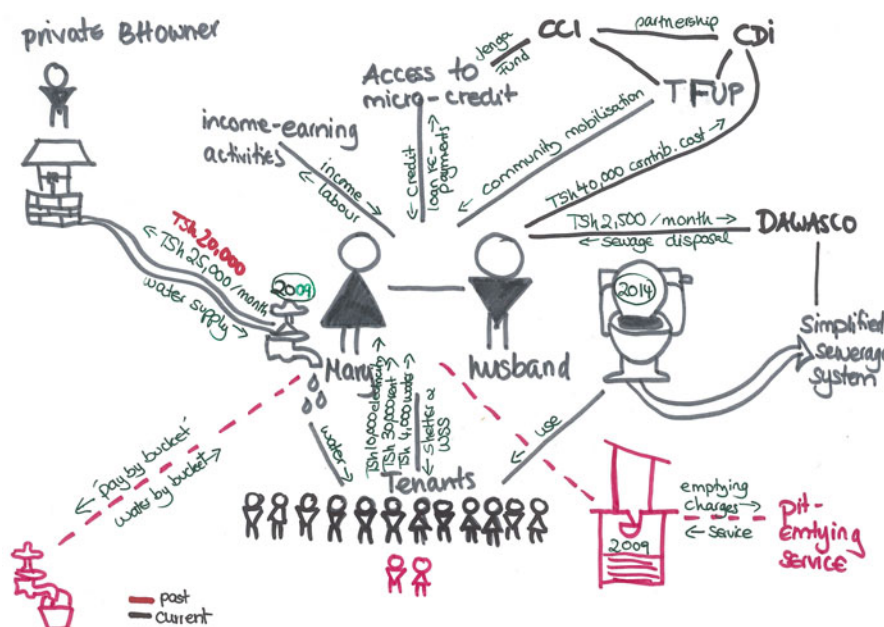 private BHowner
CCI
partnership
CDI
Jenga
Fund
Access to
micro-credit
TFUP
income-earning
activities
income →
← labour
← credit
loan re- →
payments
← community mobilisation
TSh 40,000 contrib. cost →
TSh 2,500/month →
← sewage disposal
DAWASCO
TSh 20,000
← TSh 25,000/month
water supply →
2009
2014
Simplified
sewerage
system
Mary
husband
TSh 10,000 electricity →
TSh 30,000 rent →
TSh 4,000 water →
← shelter &
WSS
water →
← use
← 'pay by bucket'
water by bucket →
Tenants
emptying
charges →
← service
pit-
emtying
SERVICE
2009
past
current